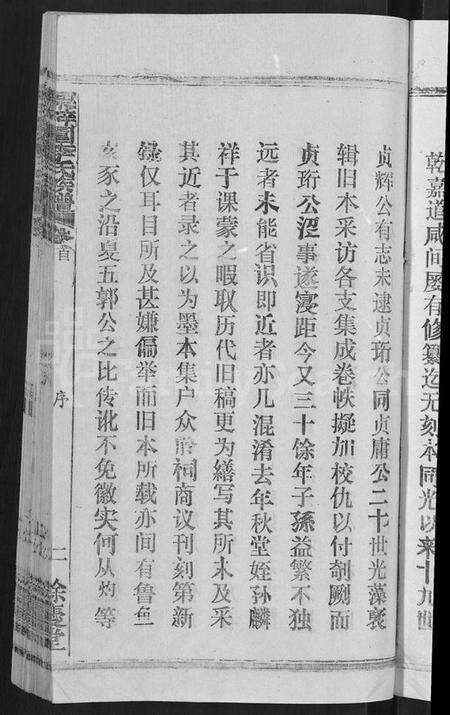 乾嘉道咸间屡有修纂迄无刻本同光以来十九世
贞辉公有志未逮贞珩公同贞庸公二十世光藻裒
辑旧本采访各支集成卷帙拟加校仇以付剞劂而
贞珩公涩事遂寝距今又三十馀年子孫益繁不独
远者未能省识即近者亦几混淆去年秋堂姪孙麟
祥于课蒙之暇取历代旧稿更为缮写其所未及采
其近者录之以为墨本集户众祠商议刊刻第新
录仅耳目所及甚嫌偏举而旧本所载亦间有鲁鱼
亥豕之沿夏五郭公之比传讹不免徵实何从灼等
首
序
二
馀庆堂